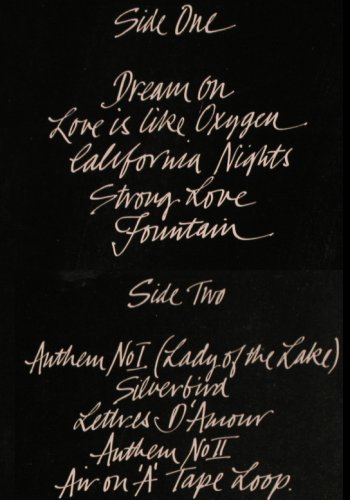 Side One
Dream on
Love is like Oxygen
California Nights
Strong Love
Fountain
Side Two
Anthem No I (Lady of the Lake)
Silverbird
Lettres D'Amour
Anthem No II
Air on 'A' Tape Loop.